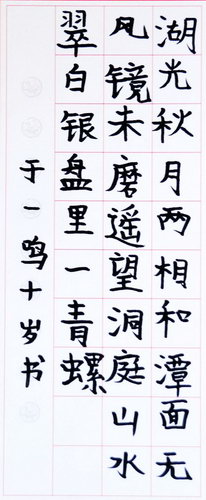 湖光秋月两相和潭面无
风镜未磨遥望洞庭山水
翠白银盘里一青螺
于一鸣十岁书